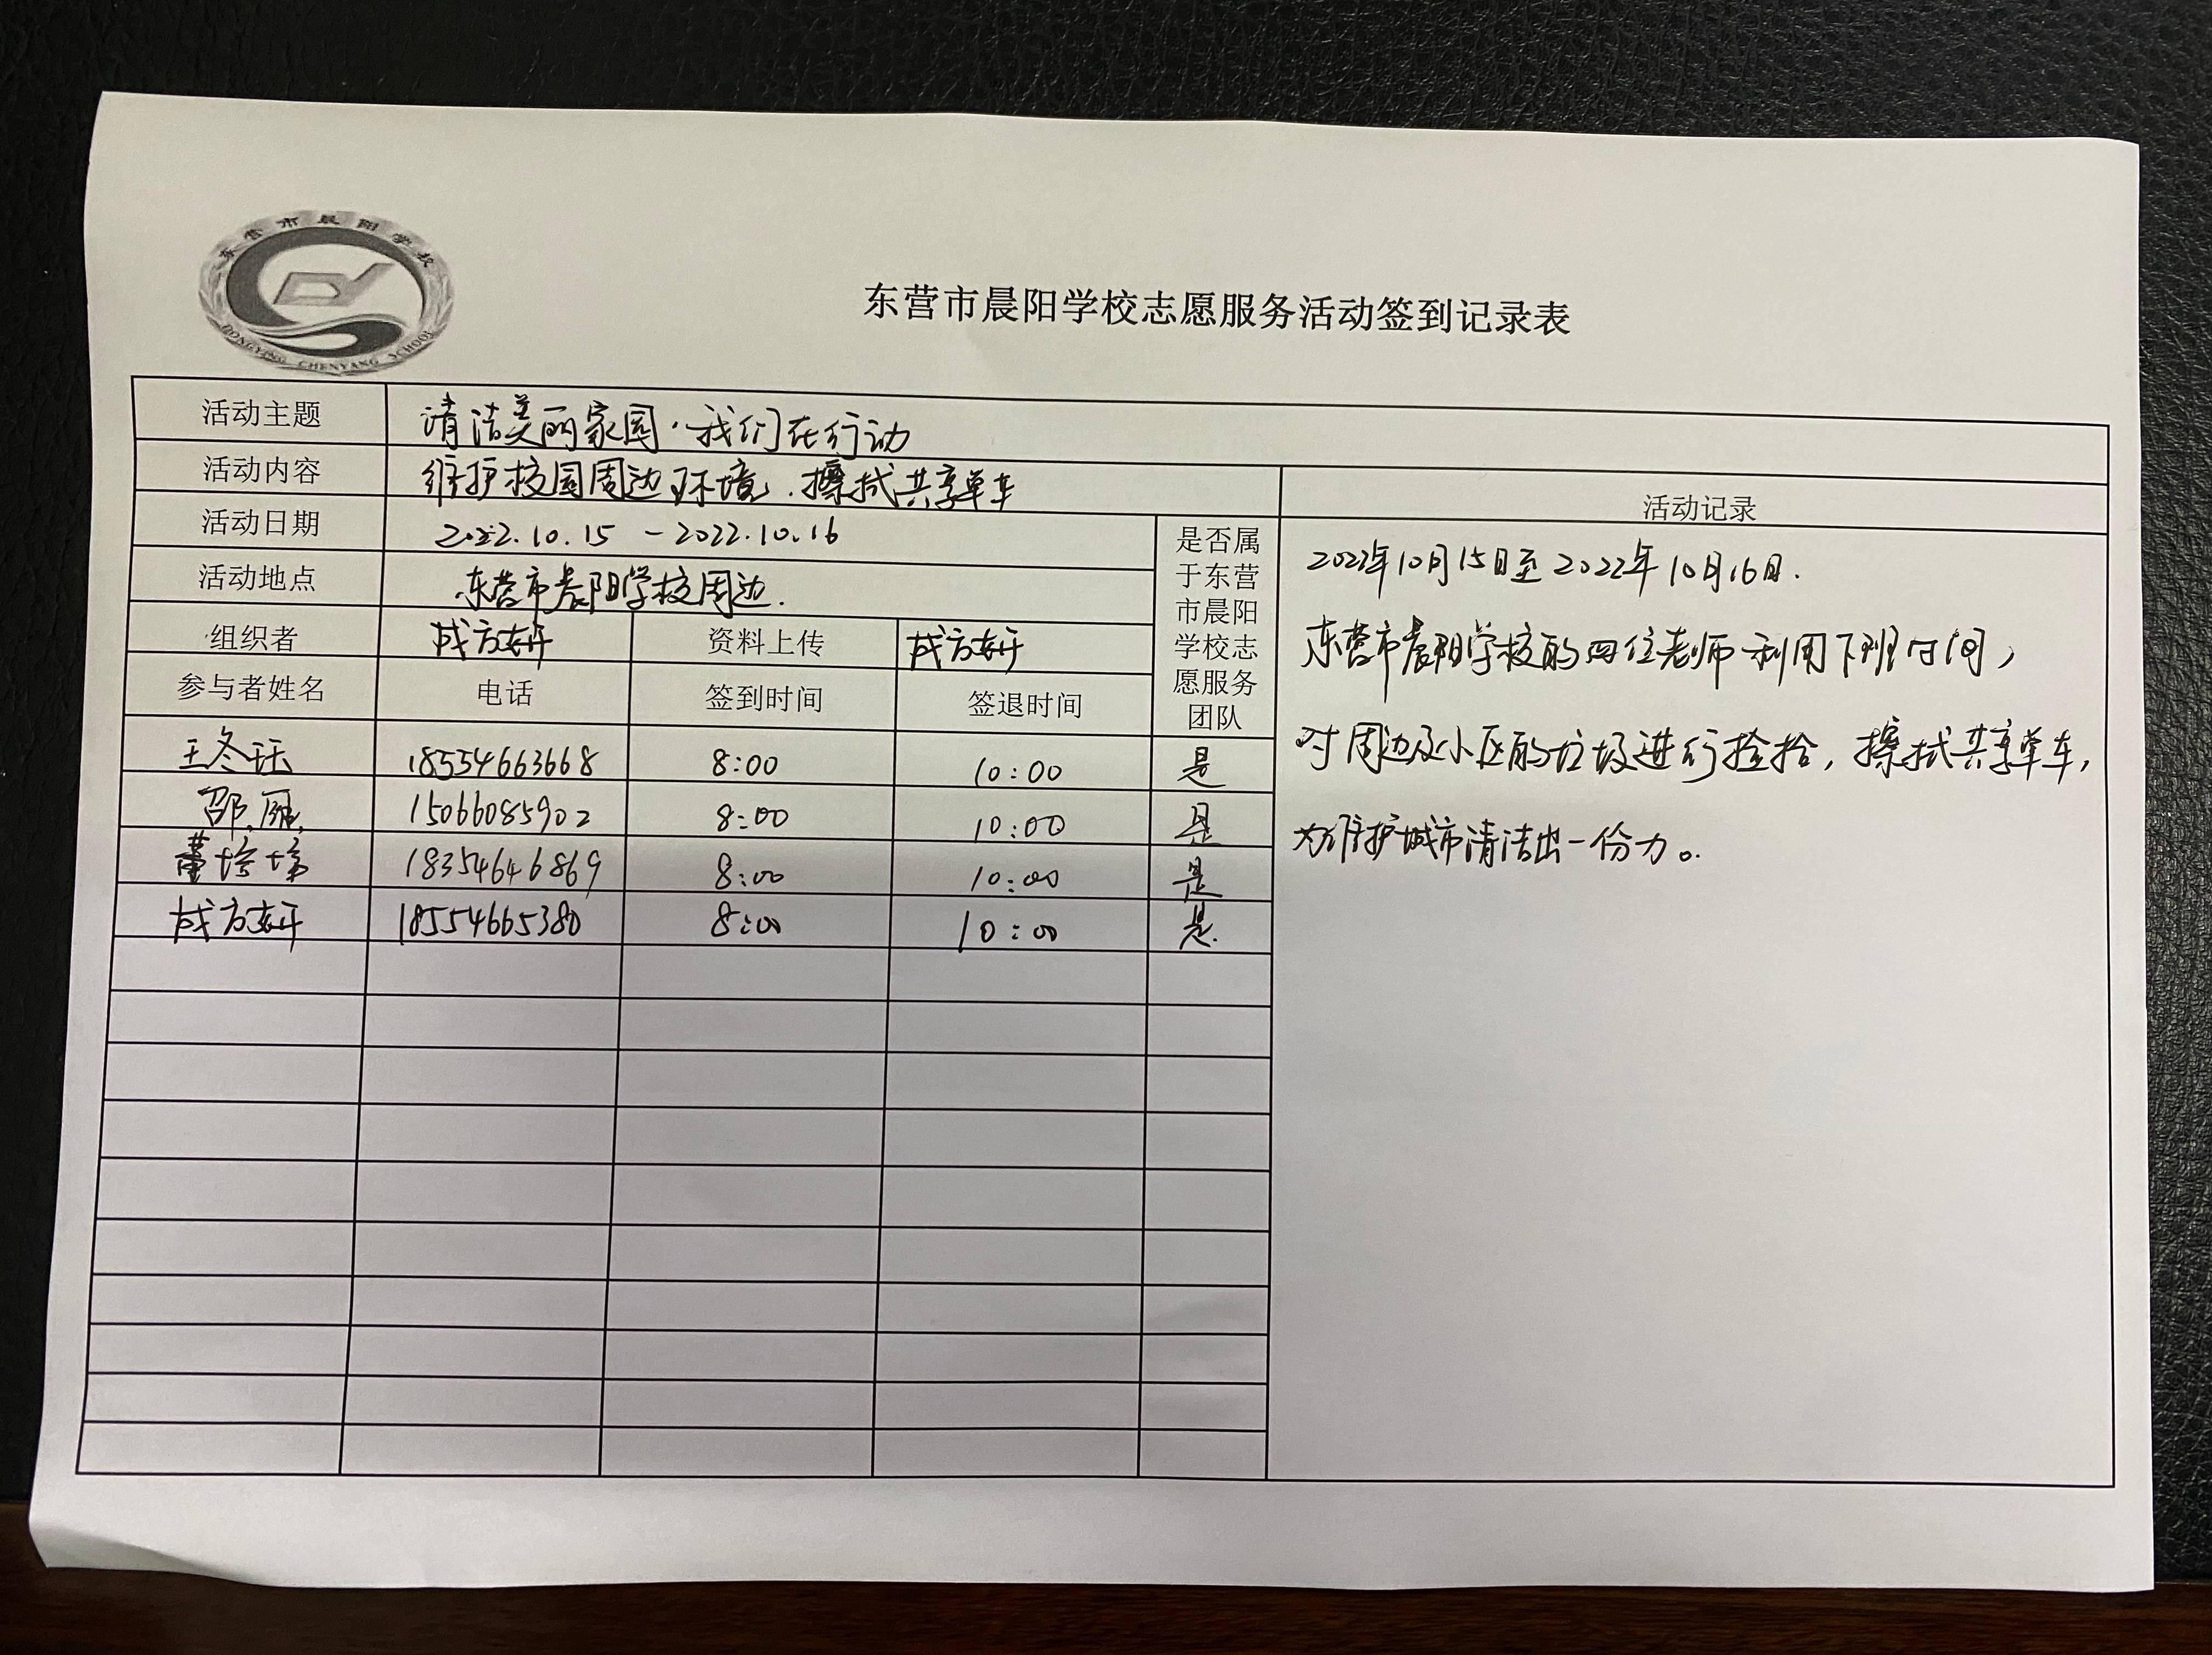 东营市晨阳学校
DONGYING CHENYANG SCHOOL
东营市晨阳学校志愿服务活动签到记录表
活动主题 清洁美丽家园·我们在行动
活动内容 维护校园周边环境、擦拭共享单车
活动记录
活动日期 2022.10.15 - 2022.10.16
活动地点 东营市晨阳学校周边.
是否属
于东营
市晨阳
学校志
愿服务
团队
组织者 成方妍 资料上传 成方妍
参与者姓名 电话 签到时间 签退时间
王冬珏 18554663668 8:00 10:00 是
邵 15066085902 8:00 10:00 是
董培培 18354646869 8:00 10:00 是
成方妍 18554665380 8:00 10:00 是.
2022年10月15日至2022年10月16日.
东营市晨阳学校的四位老师利用下班时间,
对周边及小区的垃圾进行捡拾,擦拭共享单车,
为维护城市清洁出一份力。